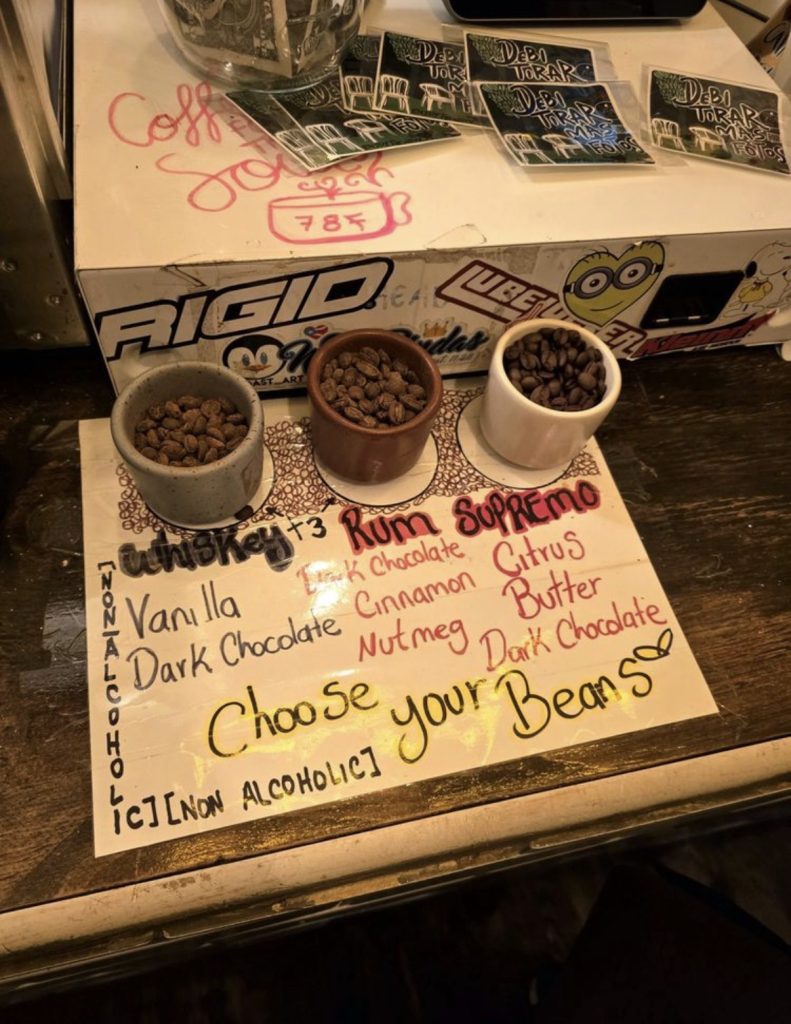 DEBI
TORAR
DEBI
TORAR
DEBI
TORAR
MAS
FOTOS
DEBI
TORAR
MAS
FOTOS
FOTOS
Coff
787
RIGID
LUBE
WhisKey +3
Rum
SUPREMO
Vanilla
Dark Chocolate
Dark Chocolate
Cinnamon
Nutmeg
Citrus
Butter
Dark Chocolate
Choose your Beans
[NON ALCOHOLIC]
[NON ALCOHOLIC]